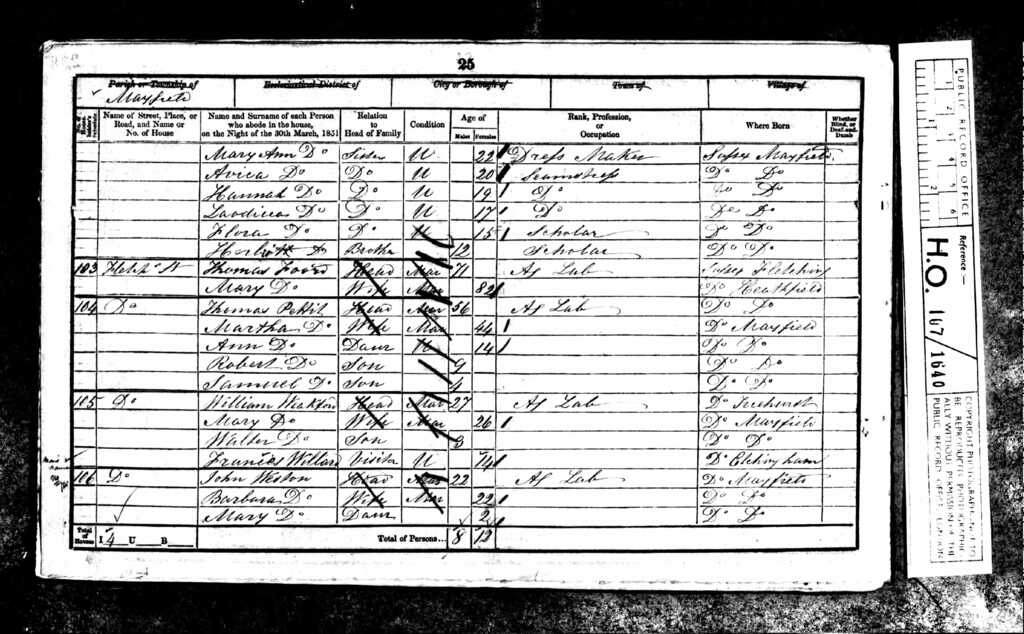 25
Parish or Township of Ecclesiastical District of City or Borough of Town of Village of
Mayfield
Name of Street, Place, or Road, and Name or No. of House Name and Surname of each Person who abode in the house, on the Night of the 30th March, 1851 Relation to Head of Family Condition Age of Males Females Rank, Profession, or Occupation Where Born Whether Blind, or Deaf-and-Dumb
Mary Ann Do Sister U 22 Dress Maker Sussex Mayfield
Avica Do Do U 20 Seamstress Do Do
Hannah Do Do U 19 Do Do Do
Laodicea Do Do U 17 Do Do Do
Flora Do Do U 15 Scholar Do Do
Do Brother 12 Scholar Do Do
103 Thomas Foord Head Mar 71 Ag Lab Sussex Fletching
Mary Do Wife Mar 82 Do Heathfield
104 Do Thomas Pettit Head Mar 56 Ag Lab Do Do
Martha Do Wife Mar 44 Do Mayfield
Ann Do Daur U 14 Do Do
Robert Do Son 9 Do Do
Samuel Do Son 4 Do Do
105 Do William Head Mar 27 Ag Lab Do Ticehurst
Mary Do Wife Mar 26 Do Mayfield
Walter Do Son 3 Do Do
Frances Willard Visitor U 14 Do Etchingham
106 Do John Weston Head Mar 22 Ag Lab Do Mayfield
Barbara Do Wife Mar 22 Do Do
Mary Do Daur 2 Do Do
Total of Houses I 4 U B Total of Persons... 8 12
PUBLIC RECORD OFFICE
1 2 3 4 5 6
1 2
Reference:-
H.O. 107/1640
COPYRIGHT PHOTOGRAPH - NOT TO BE REPRODUCED PHOTOGRAPHICALLY WITHOUT PERMISSION OF THE PUBLIC RECORD OFFICE, LONDON